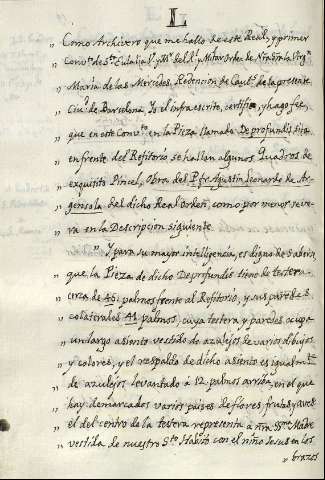 L
„ Como Archivero que me hallo de este Real, y primer
„ Conv.to de S.ta Eulalia V. y M.r del R.l y Militar Orden de Ntra Sra la Virg.n
„ Maria de las Mercedes, Redencion de Caut.s de la presente
„ Ciu.d de Barcelona. Yo el infraescrito, certifico, y hago fee,
„ que en este Conv.to en la Pieza llamada Deprofundis sita
„ enfrente del Refitorio se hallan algunos Quadros de
„ exquisito Pincel, Obra del P. fr Agustin Leonardo de Ar-
„ gensola del dicho Real Orden, como por menor se ve-
„ ra en la Descripcion siguiente.
„ Y para su mayor inteligencia, es digno de saberse
„ que la Pieza de dicho Deprofundis tiene de testera
„ cerca de 45 palmos frente al Refitorio, y sus paredes
„ colaterales 41 palmos, cuya testera y paredes ocupa
„ un largo asiento vestido de azulejos de varios dibujos
„ y colores, y el respaldo de dicho asiento es igualm.te
„ de azulejos levantado à 12 palmos arriba, en el que
„ hay demarcados varios paises de flores, frutas y aves
„ el del centro de la testera representa a ñra SS.ma Madre
„ vestida de nuestro S.to Habito con el niño Jesus en los
„ brazos